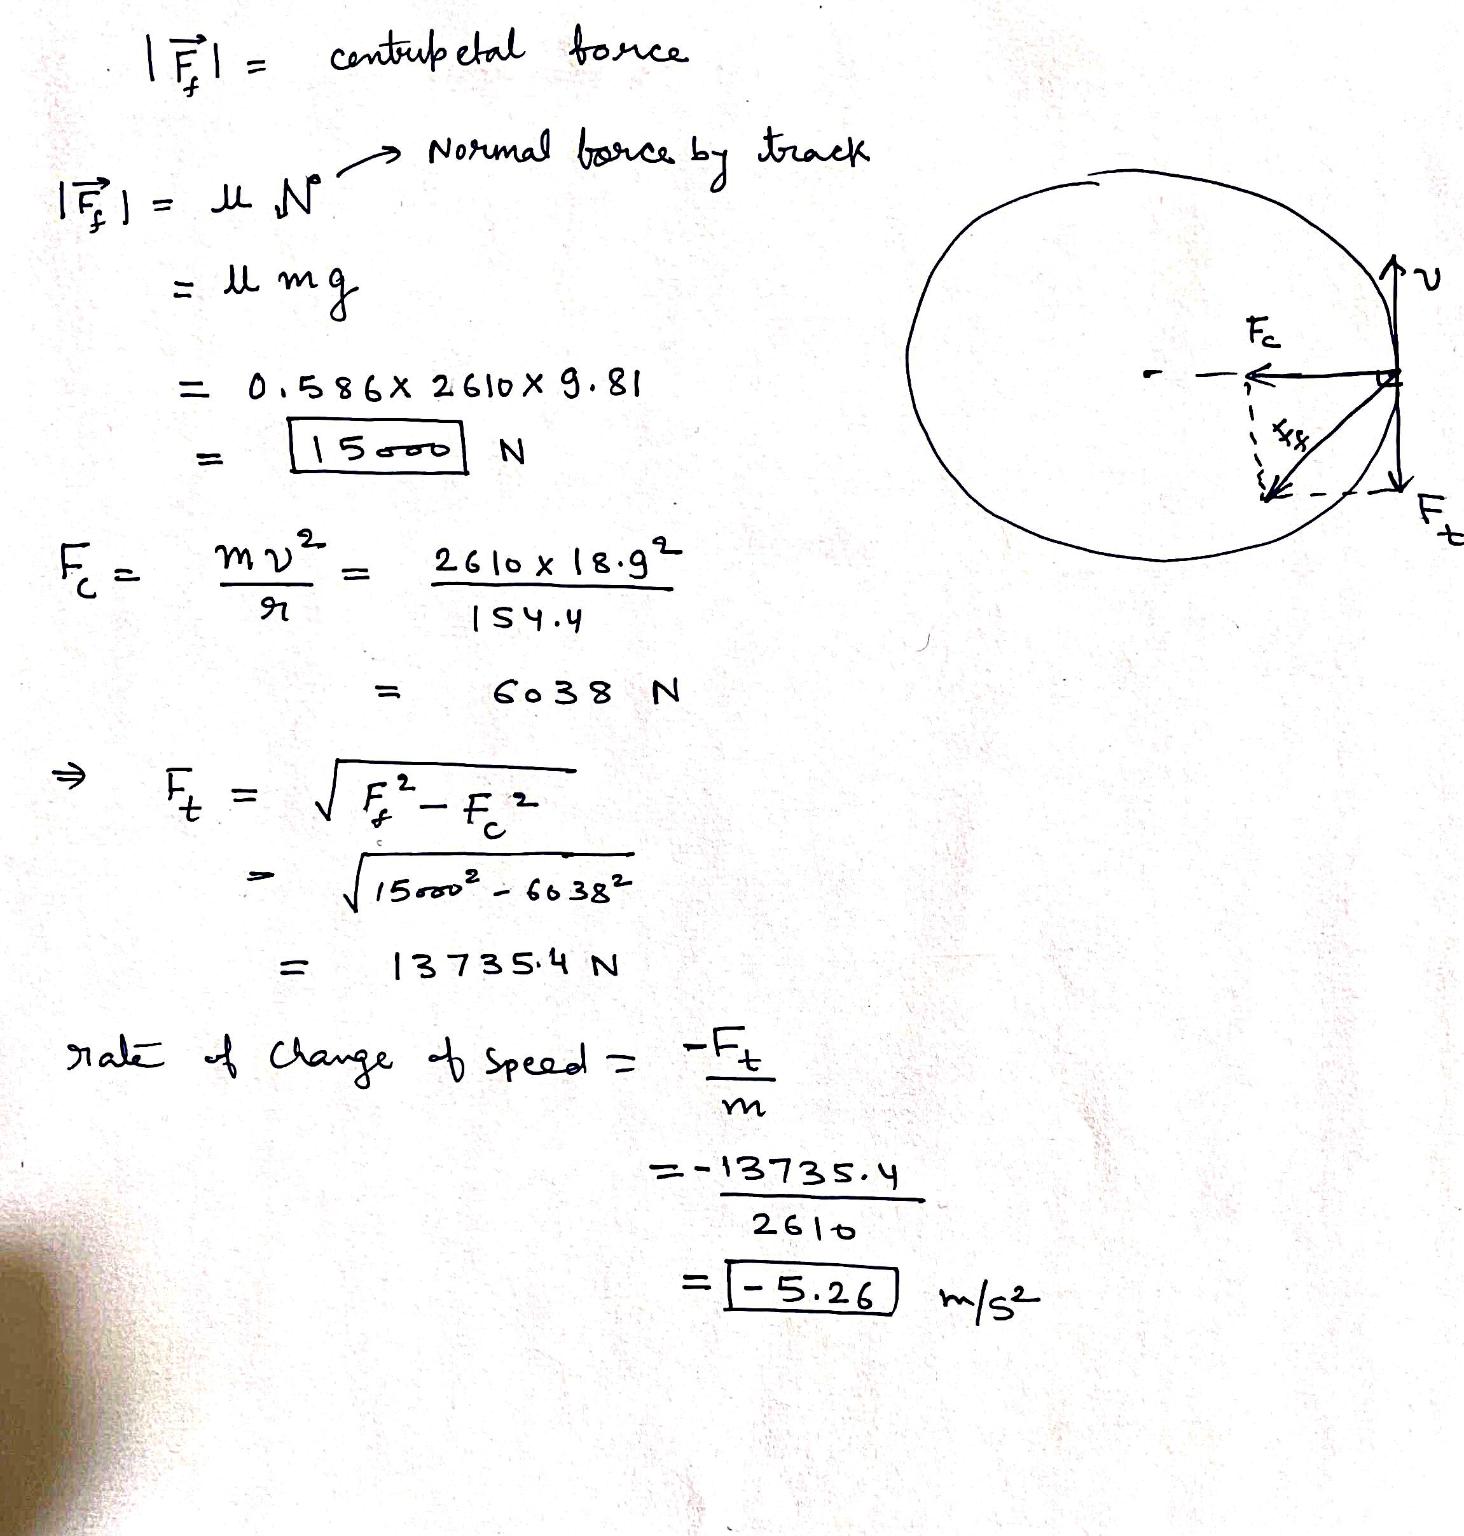 |F⃗f| = centripetal force
→ Normal force by track
|F⃗f| = μ N
= μ mg
= 0.586 × 2610 × 9.81
= 15000 N
Fc = mv²/r = 2610 × 18.9²/154.4
= 6038 N
⇒ Ft = √(Ff² - Fc²)
= √(15000² - 6038²)
= 13735.4 N
rate of change of speed = -Ft/m
= -13735.4/2610
= -5.26 m/s²
v
Fc
Ff
Ft